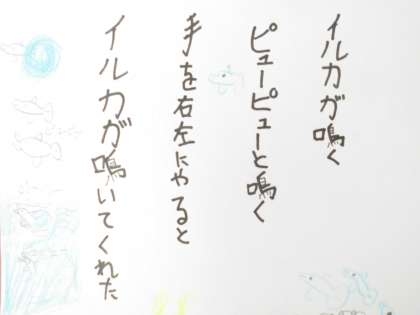 イルカが鳴く
ピューピューと鳴く
手を右左にやると
イルカが鳴いてくれた